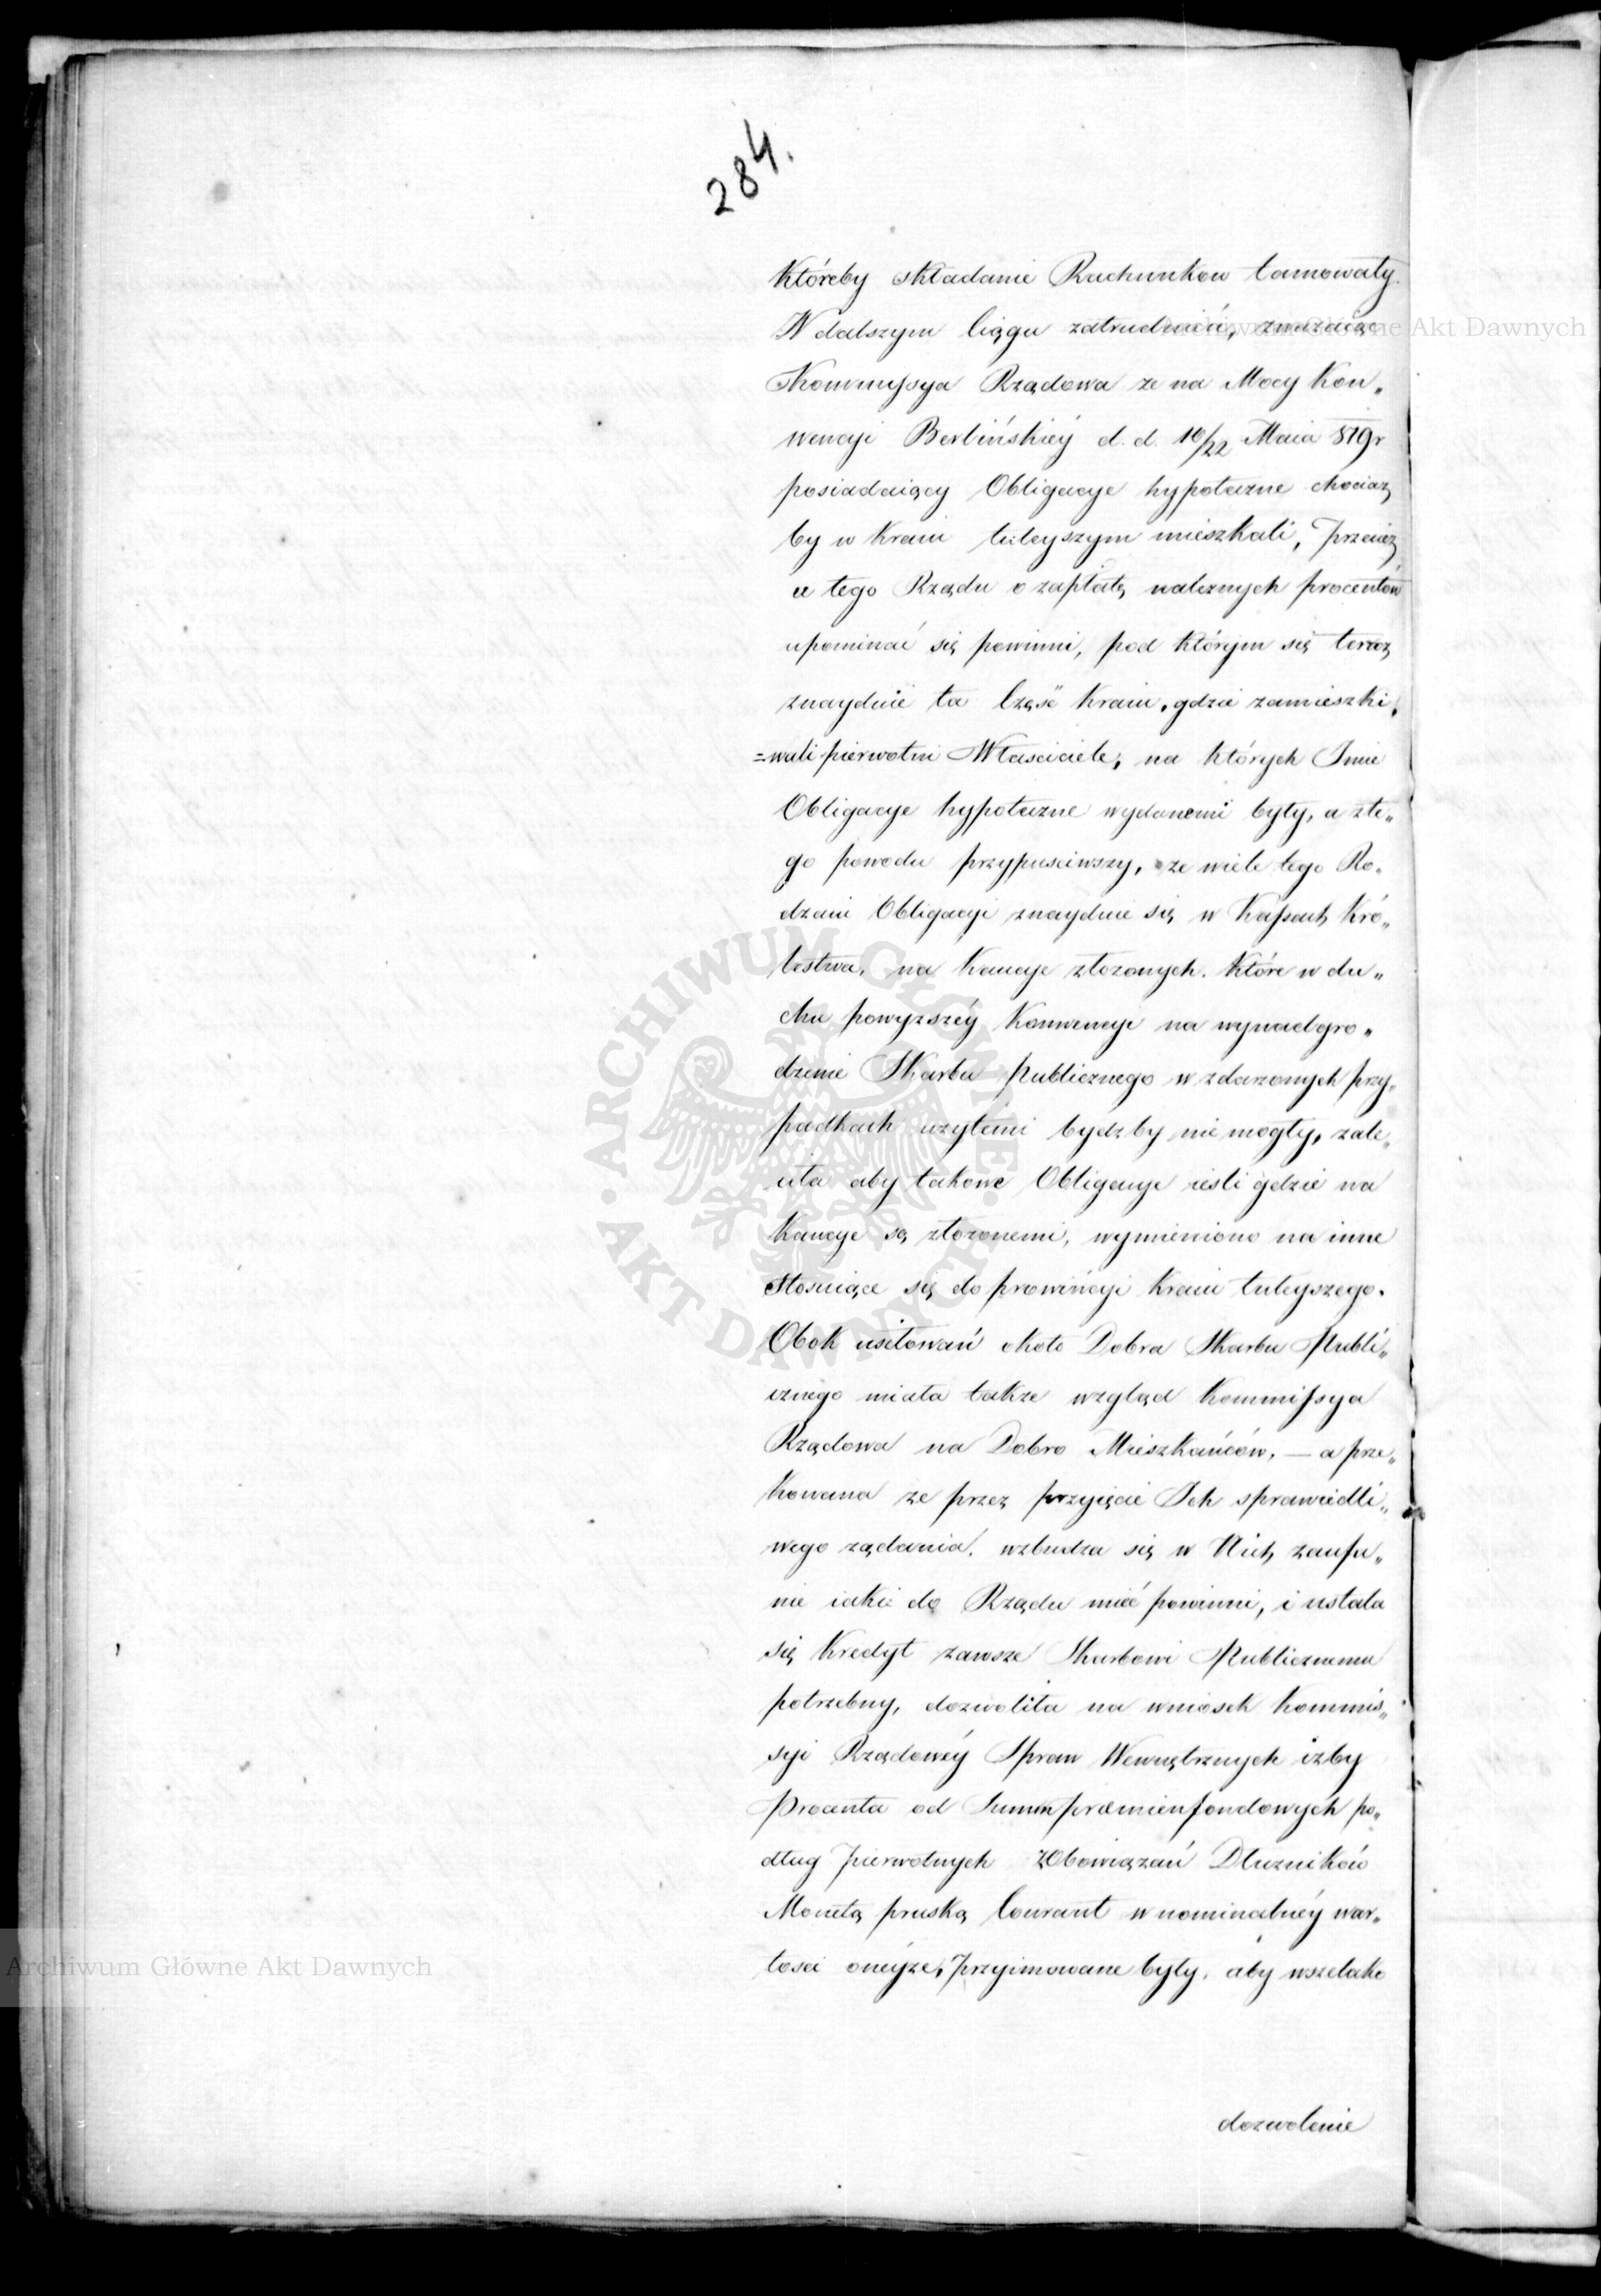 284.
któreby składanie Rachunkow tamowały.
W dalszym Ciągu zatrudnień, zwazaiąc
Kommissya Rządowa ze na Mocy Kon„
wencyi Berlińskiéy d. d. 10/22 Maia 819r
posiadaiący Obligacye hypoteczne chociaz
by w Kraiu tuteyszym mieszkali, przeciez
u tego Rządu o zapłatę naleznych procentów
upominać się powinni, pod którym się teraz
znayduie ta Część Kraiu, gdzie zamieszki„
=wali pierwotni Właściciele, na których Imie
Obligacye hypoteczne wydanemi były, a zte„
go powodu przypuściwszy, ze wiele tego Ro„
dzaiu Obligacyi znayduie się w Kassach Kró„
lestwa, na Kaucye złozonych. Które w du„
chu powyzszéy Konwencyi na wynadgro„
dzenie Skarbu Publicznego w zdarzonych przy„
padkach uzytemi bydzby nie mogły, zale„
ciła aby takowe Obligacye ieśli gdzie na
Kaucye są złozonemi, wymieniono na inne
stosuiące się do prowincyi Kraiu tuteyszego.
Obok usiłowań około Dobra Skarbu Publi„
cznego miała takze wzgląd Kommissya
Rządowa na Dobro Mieszkańców, — a prze„
konana ze przez przyięcie Ich sprawiedli„
wego ządania, wzbudza się w Nich zaufa„
nie iakie do Rządu mieć powinni, i ustala
się Kredyt zawsze Skarbowi Publicznemu
potrzebny, dozwoliła na wniosek Kommis„
syi Rządowéy Spraw Wewnętrznych izby
Procenta od Summ præmienfondowych po„
dług pierwotnych Zobowiązań Dłuzników
Monetą pruską Courant w nominalnéy war„
tości onéyze, przyimowane były, aby wszelako
dozwolenie
Archiwum Główne Akt Dawnych
Archiwum Główne Akt Dawnych
ARCHIWUM GŁÓWNE · AKT DAWNYCH ·